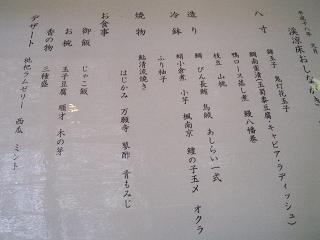 渓涼床おしながき
八寸
錦玉子 鬼灯花玉子
鯛南蛮漬(玉蜀黍豆腐・キャビア・ラディッシュ)
鴨ロース蒸し煮 鰻八幡巻
枝豆 山桃
造り
鯛 びん長鮪 烏賊 あしらい一式
冷鉢
鯛小倉煮 小芋 楓南京 鱧の子玉〆 オクラ
ふり柚子
焼物
鮎清流焼き
はじかみ 万願寺 蓼酢 青もみじ
お食事
御飯 じゃこ飯
お椀 玉子豆腐 順才 木の芽
香の物 三種盛
デザート
枇杷ラムゼリー 西瓜 ミント